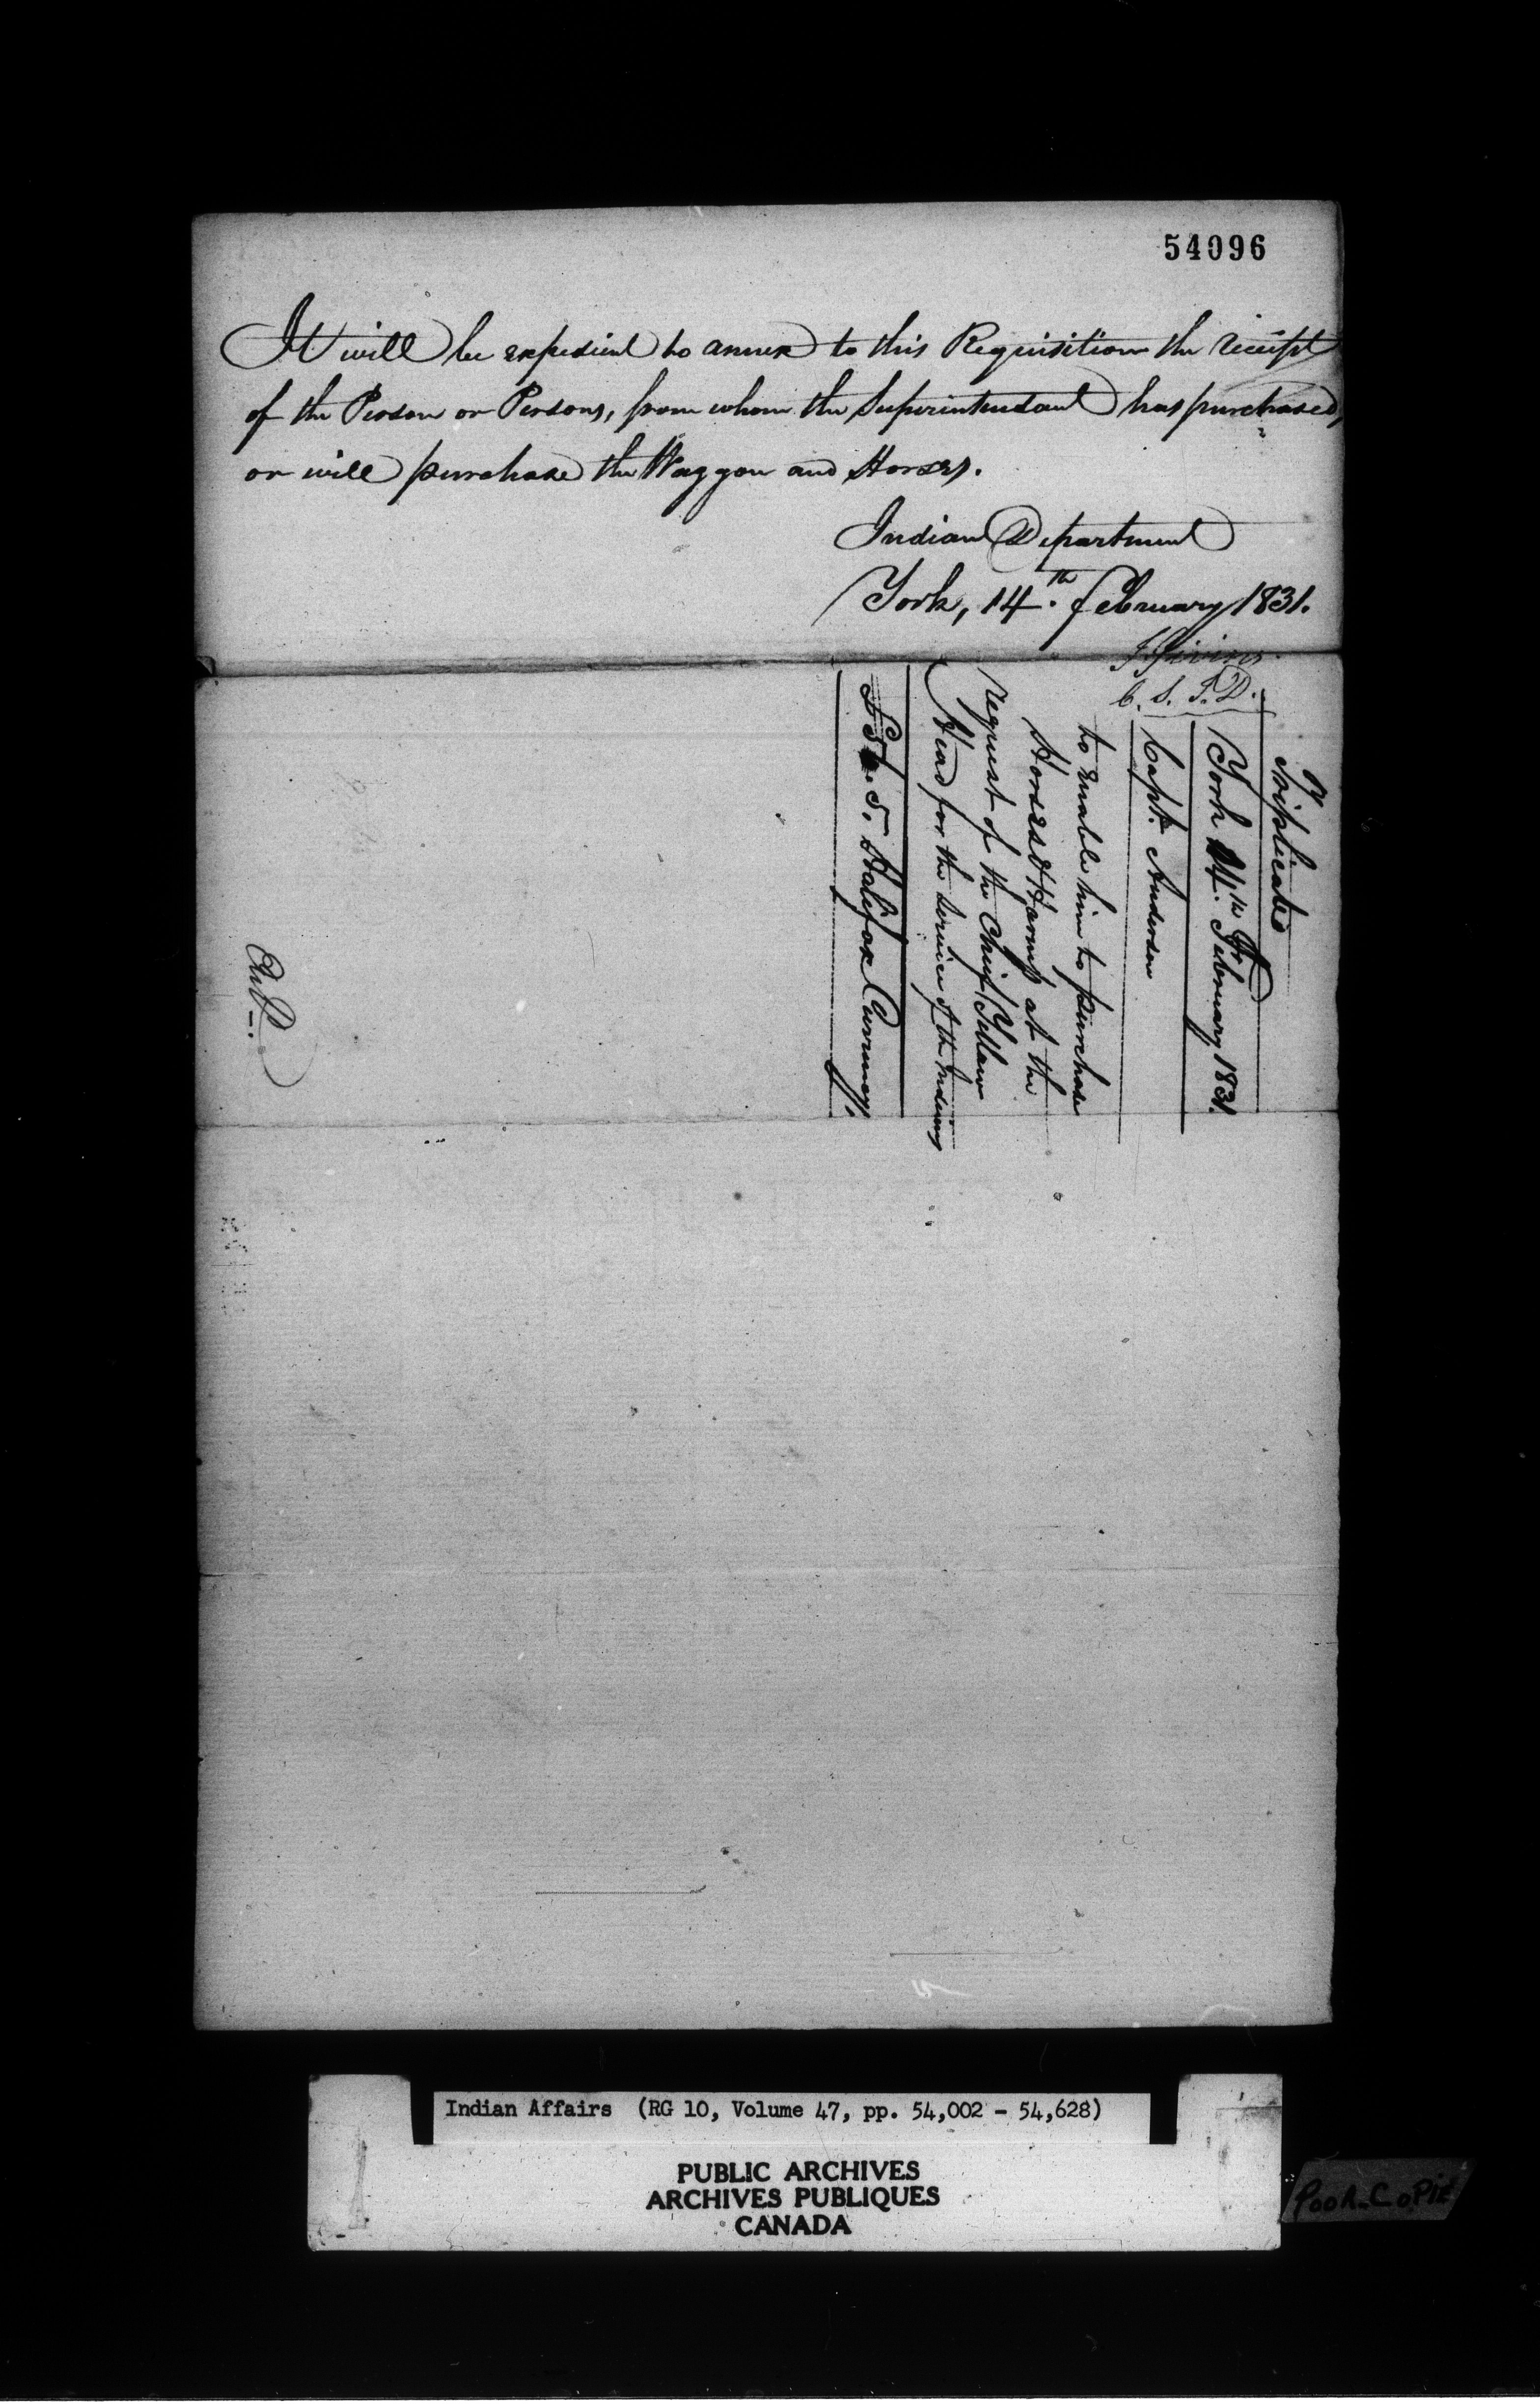 54096
It will be expedient to annex to this Requisition the receipt
of the Person or Persons, from whom the Superintendant has purchased,
or will purchase the Waggon and Horses.
Indian Department
York, 14th. February 1831.
J Givins.
C. S. I. D.
Triplicate
York 14th. February 1831.
Capt. Anderson
to enable him to purchase
Horses & Harness at the
request of the Chief Yellow
Head for the service of the Indians
5. Halifax Currency.
Indian Affairs (RG 10, Volume 47, pp. 54,002 - 54,628)
PUBLIC ARCHIVES
ARCHIVES PUBLIQUES
CANADA
POOR COPIE